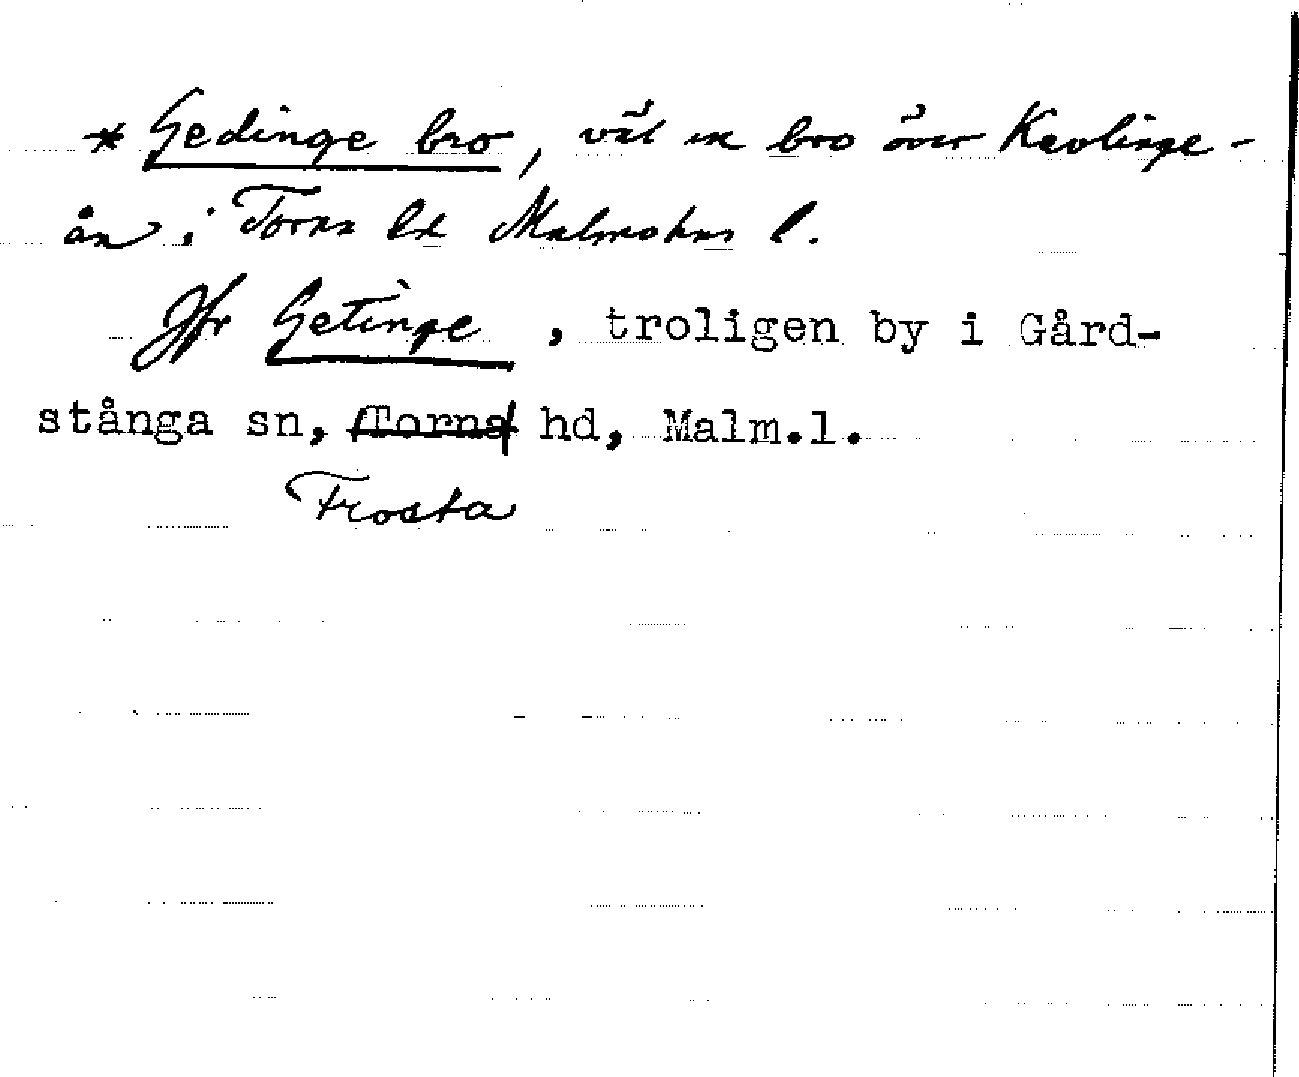 * Gedinge bro, väl en bro över Kävlinge-
ån i Torna hd Malmöhus l.
Jfr Getinge, troligen by i Gård-
stånga sn, Torna hd, Malm.l.
Frosta